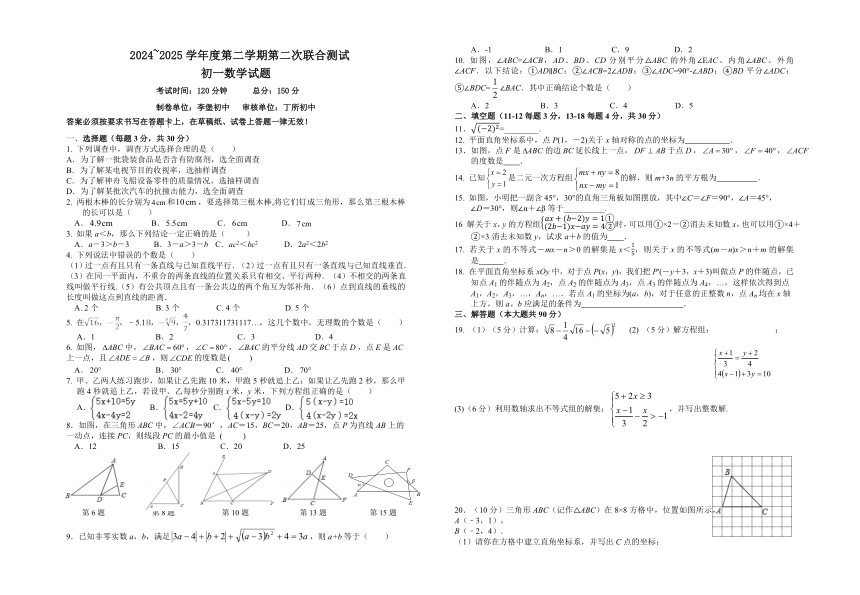 2024~2025 学年度第二学期第二次联合测试
初一数学试题
考试时间：120 分钟 总分：150 分
制卷单位：李堡初中 审核单位：丁所初中
答案必须按要求书写在答题卡上，在草稿纸、试卷上答题一律无效！
一、选择题（每题 3 分，共 30 分）
1. 下列调查中，调查方式选择合理的是（ ）
A．为了解一批袋装食品是否含有防腐剂，选全面调查
B．为了解某电视节目的收视率，选抽样调查
C．为了解神舟飞船设备零件的质量情况，选抽样调查
D．为了解某批次汽车的抗撞击能力，选全面调查
2. 两根木棒的长分别为4 cm 和10 cm，要选择第三根木棒,将它们钉成三角形，那么第三根木棒
的长可以是（ ）
A．4.9 cm B．5.5 cm C．6 cm D．7 cm
3. 如果 a＜b，那么下列结论一定正确的是（ ）
A．a－3＞b－3 B．3－a＞3－b C．ac²＜bc² D．2a²＜2b²
4. 下列说法中错误的个数是（ ）
(1)过一点有且只有一条直线与已知直线平行．(2)过一点有且只有一条直线与已知直线垂直．
(3)在同一平面内，不重合的两条直线的位置关系只有相交、平行两种．(4)不相交的两条直
线叫做平行线．(5)有公共顶点且有一条公共边的两个角互为邻补角．(6)点到直线的垂线的
长度叫做这点到直线的距离．
A. 2 个 B. 3 个 C. 4 个 D. 5 个
5. 在√16，−π/2，－5.1̇8̇，−∛9，0.317311731117…，这几个数中，无理数的个数是（ ）
A．1 B．2 C．3 D．4
6. 如图，ΔABC 中，∠BAC＝60°，∠C＝80°，∠BAC 的平分线 AD 交 BC 于点 D，点 E 是 AC
上一点，且∠ADE＝∠B，则∠CDE 的度数是( )
A．20° B．30° C．40° D．70°
7. 甲、乙两人练习跑步，如果让乙先跑 10 米，甲跑 5 秒就追上乙；如果让乙先跑 2 秒，那么甲
跑 4 秒就追上乙，若设甲、乙每秒分别跑 x 米，y 米，下列方程组正确的是（ ）
A. {5x+10=5y 4x-4y=2 B. {5x=5y+10 4x-2=4y C. {5x-5y=10 4(x-y)=2y D. {5(x-y)=10 4(x-2y)=2x
8．如图，在三角形 ABC 中，∠ACB=90°，AC=15，BC=20，AB=25，点 P 为直线 AB 上的
一动点，连接 PC，则线段 PC 的最小值是（ ）
A．12 B．15 C．20 D．25
第 6 题 第 8 题 第 10 题 第 13 题 第 15 题
9．已知非零实数 a，b，满足|3a－4|＋|b＋2|＋√((a－3)b²)＋4＝3a，则 a+b 等于（ ）
A．-1 B．1 C．9 D．2
10. 如图，∠ABC=∠ACB，AD、BD、CD 分别平分△ABC 的外角∠EAC、内角∠ABC、外角
∠ACF．以下结论：①AD∥BC；②∠ACB=2∠ADB；③∠ADC=90°-∠ABD；④BD 平分∠ADC；
⑤∠BDC=1/2∠BAC．其中正确结论个数是（ ）
A．2 B．3 C．4 D．5
二、填空题（11-12 每题 3 分，13-18 每题 4 分，共 30 分）
11．√((−2)²)= ．
12. 平面直角坐标系中，点 P(1，-2)关于 x 轴对称的点的坐标为 ．
13．如图，点 F 是 ΔABC 的边 BC 延长线上一点，DF⊥AB 于点 D，∠A＝30°，∠F＝40°，∠ACF
的度数是 ．
14. 已知{x＝2 y＝1是二元一次方程组{mx＋ny＝8 nx－my＝1的解，则 m+3n 的平方根为 ．
15. 如图，小明把一副含 45°，30°的直角三角板如图摆放，其中∠C＝∠F＝90°，∠A＝45°，
∠D＝30°，则∠α＋∠β 等于 ．
16 解关于 x，y 的方程组{ax+(b−2)y=1① (2b−1)x−ay=4②时，可以用①×2－②消去未知数 x，也可以用①×4＋
②×3 消去未知数 y，试求 a＋b 的值为 ．
17. 若关于 x 的不等式－mx－n＞0 的解集是 x＜1/2，则关于 x 的不等式(m－n)x＞n＋m 的解集
是 ．
18. 在平面直角坐标系 xOy 中，对于点 P(x，y)，我们把 P'(－y＋3，x＋3)叫做点 P 的伴随点，已
知点 A₁ 的伴随点为 A₂，点 A₂ 的伴随点为 A₃，点 A₃ 的伴随点为 A₄，…，这样依次得到点
A₁，A₂，A₃，…，Aₙ，…．若点 A₁ 的坐标为(a，b)，对于任意的正整数 n，点 Aₙ 均在 x 轴
上方，则 a，b 应满足的条件为 ．
三、解答题（本大题共 90 分）
19. （1）（5 分）计算：∛8－1/4√16－(－√5)² (2) （5 分）解方程组： ；
{(x+1)/3＝(y+2)/4 4(x−1)+3y＝10
(3)（6 分）利用数轴求出不等式组的解集：{5＋2x≥3 (x−1)/3－x/2＞−1，并写出整数解.
20. （10 分）三角形 ABC（记作△ABC）在 8×8 方格中，位置如图所示，
A（﹣3，1），
B（﹣2，4）．
（1）请你在方格中建立直角坐标系，并写出 C 点的坐标；